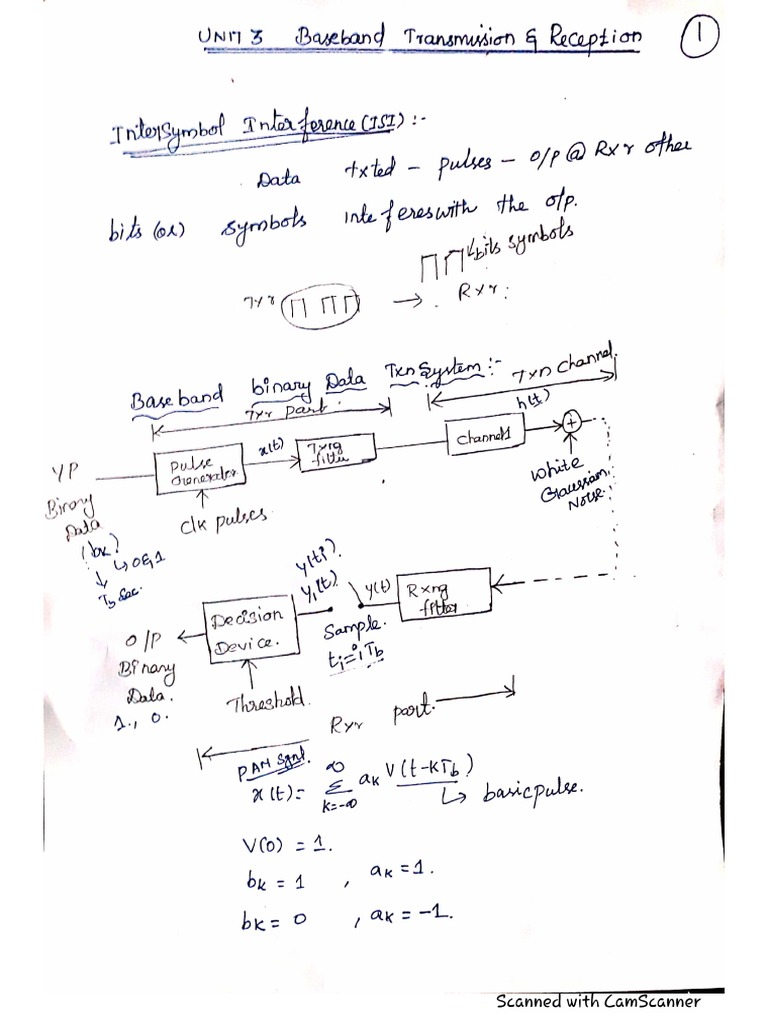 UNIT 3 Baseband Transmission & Reception
1
InterSymbol Interference (ISI) :-
Data txted - pulses - o/p @ Rxr other
bits (or) symbols interferes with the o/p.
bits symbols
Txr → Rxr:
Baseband binary Data Txn System :-
Txr part.
Txn Channel.
h(t)
I/P
Binary
Data
(bk)
↳ 0 & 1
↓
Tb Sec.
Pulse
Generator
x(t)
Txng
filter
Channel
+
clk pulses
White
Gaussian
Noise.
y(ti).
y,(t).
y(t)
Rxng
filter
Decision
Device.
Sample.
ti=iTb
O/P
Binary
Data.
1., 0.
Threshold.
Rxr part.
PAM Sgnl.
x(t) = ∞ Σ k=-∞ ak V(t-kTb)
↳ basic pulse.
V(0) = 1.
bk = 1 , ak = 1.
bk = 0 , ak = -1.
Scanned with CamScanner